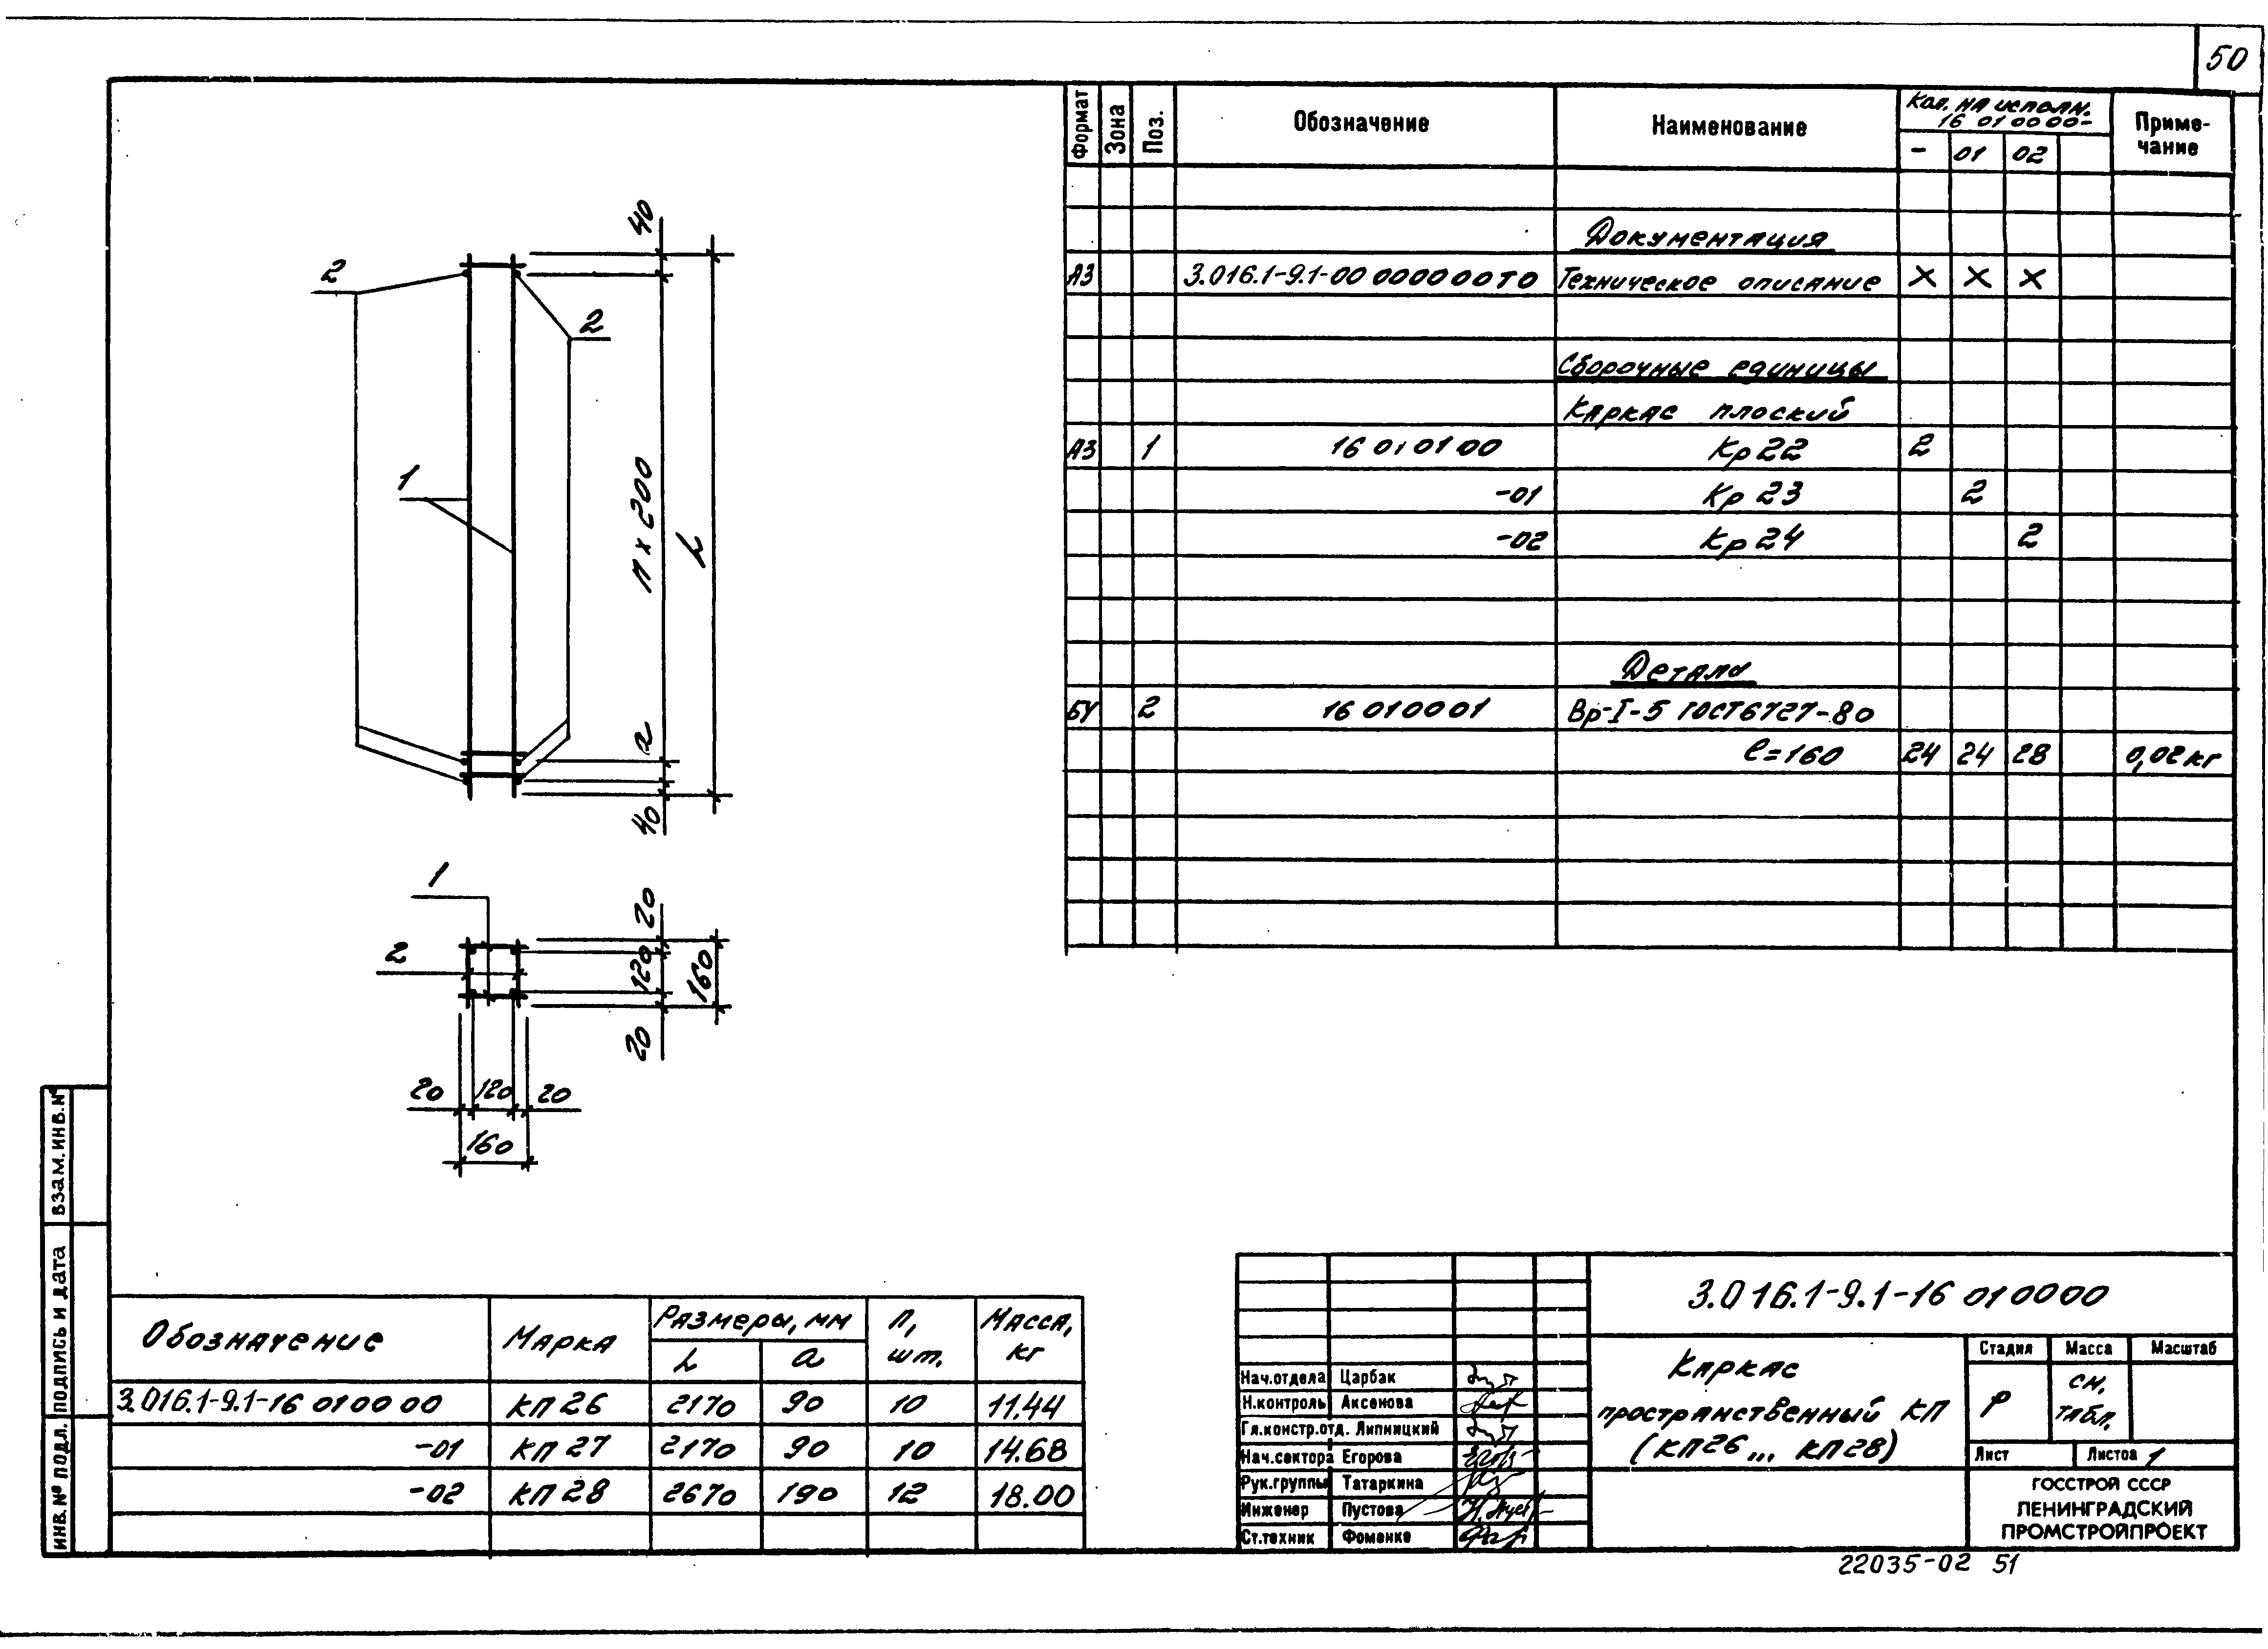 50
Формат Зона Поз. Обозначение Наименование Кол. на исполн. 16 010000- Приме-чание
- 01 02
Документация
А3 3.016.1-9.1-00 000000ТО Техническое описание X X X
Сборочные единицы
Каркас плоский
А3 1 16 010100 Кр 22 2
-01 Кр 23 2
-02 Кр 24 2
Детали
БЧ 2 16 010001 Вр-I-5 ГОСТ 6727-80
ℓ=160 24 24 28 0,02 кг
2
2
1
40
n x 200
L
a
40
1
2
20
120
160
20
20 120 20
160
Обозначение Марка Размеры, мм n, шт. Масса, кг
L a
3.016.1-9.1-16 010000 КП 26 2170 90 10 11.44
-01 КП 27 2170 90 10 14.68
-02 КП 28 2670 190 12 18.00
3.016.1-9.1-16 010000
Каркас
пространственный КП
(КП26 ... КП28)
Стадия Масса Масштаб
Р см. табл.
Лист Листов 1
ГОССТРОЙ СССР
ЛЕНИНГРАДСКИЙ
ПРОМСТРОЙПРОЕКТ
Нач.отдела Царбак
Н.контроль Аксенова
Гл.констр.отд. Липницкий
Нач.сектора Егорова
Рук.группы Татаркина
Инженер Пустова
Ст.техник Фоменко
ВЗАМ.ИНВ.№
ПОДПИСЬ И ДАТА
ИНВ.№ ПОДЛ.
22035-02 51